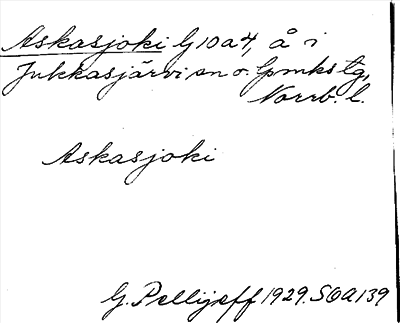 Askasjoki G10a4, å i
Jukkasjärvi sn o. lpmks tg,
Norrb. l.
Askasjoki
G. Pellijeff 1929. SOA139